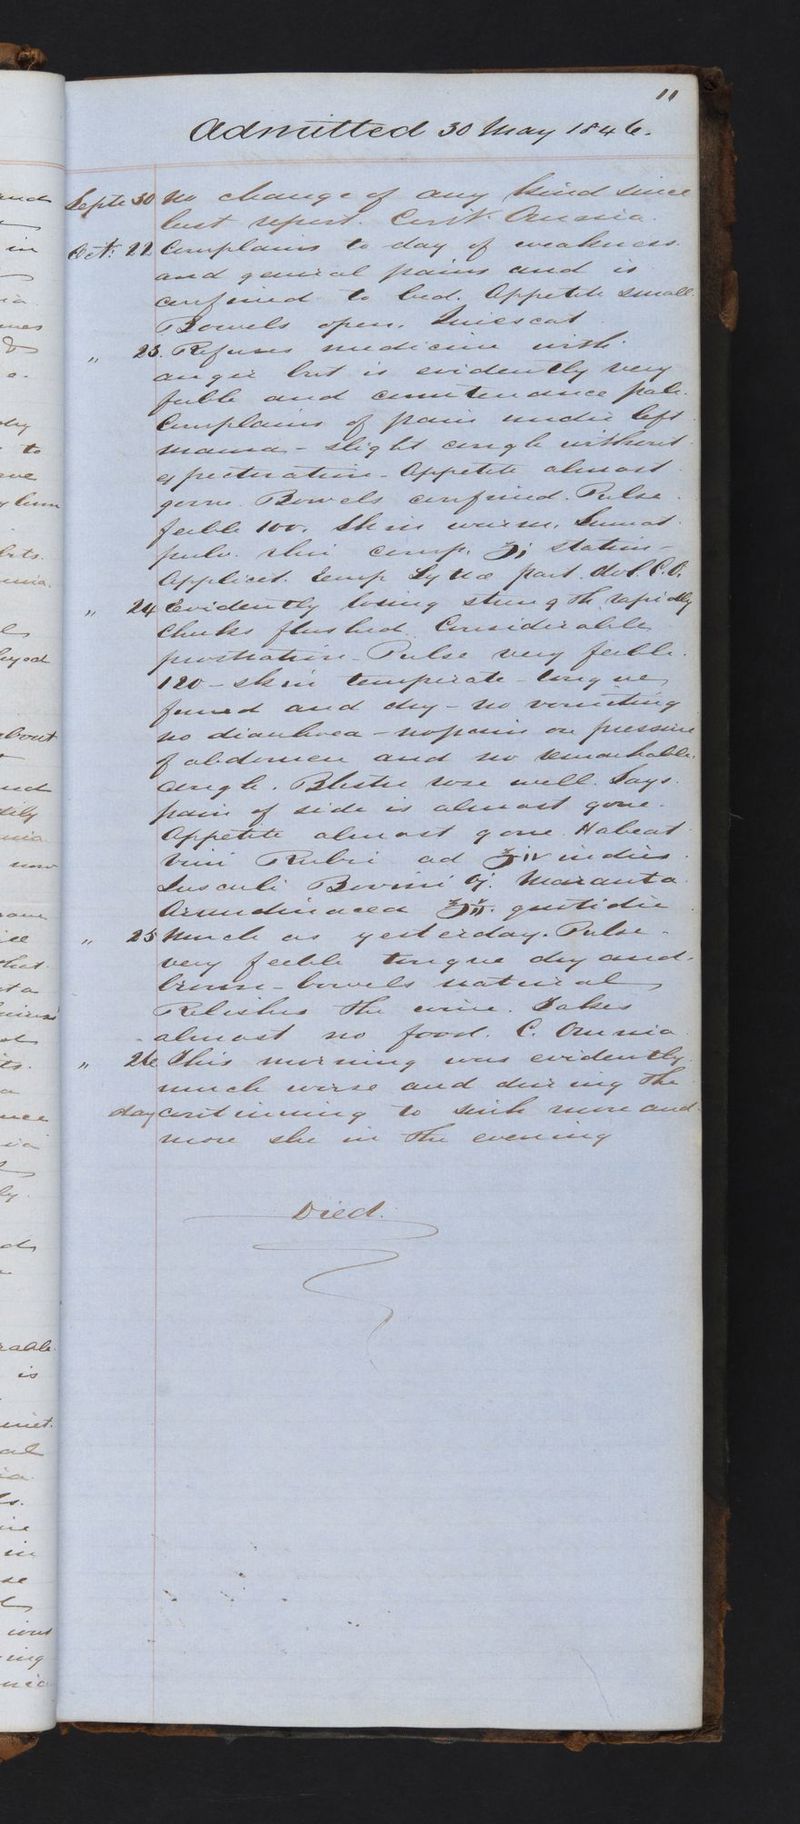 11
Admitted 30 May 1846.
Septr 30 No change of any kind since
last report. Cont. Omnia.
Oct: 22 Complains to day of weakness
and general pains and is
confined to bed. Appetite small.
Bowels open. Quiescat
" 23. Refuses medicine with
anger but is evidently very
feeble and countenance pale.
Complains of pain under left
mamma - slight cough without
expectoration - Appetite almost
gone. Bowels confined. Pulse
feeble 100. Skin warm. Sumat
pulv. rhei comp. ʒj statim -
Applicet. Emp Lyttae part. dol. C.O.
" 24 Evidently losing strength rapidly
Cheeks flushed. Considerable
prostration - Pulse very feeble.
120 - skin temperate - tongue
furred and dry - no vomiting
no diarrhoea - no pain on pressure
of abdomen and no remarkable
cough. Blister rose well. Says
pain of side is almost gone.
Appetite almost gone. Habeat
Vini Rubri ad ℥iv indies.
Jusculi Bovini ℔j. Maranta
Arundinacea ℥ii. quotidie
" 25 Much as yesterday. Pulse
very feeble tongue dry and
brown - bowels natural
Relishes the wine. Takes
almost no food. C. Omnia
" 26 This morning was evidently
much worse and during the
day continuing to sink more and
more she in the evening
Died.